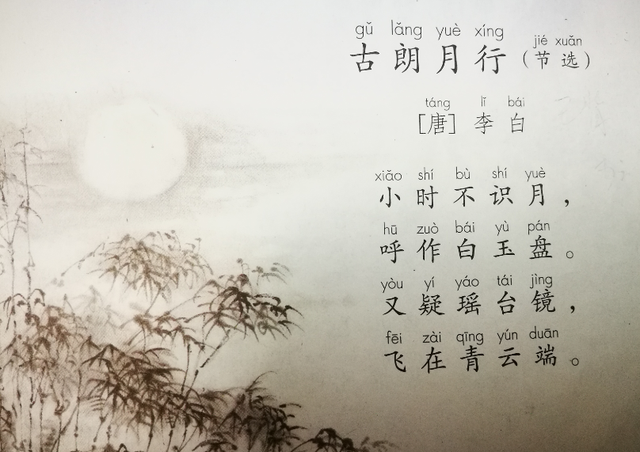 gǔ lǎng yuè xíng jié xuǎn
古朗月行（节选）
táng lǐ bái
[唐] 李白
xiǎo shí bù shí yuè
小时不识月，
hū zuò bái yù pán
呼作白玉盘。
yòu yí yáo tái jìng
又疑瑶台镜，
fēi zài qīng yún duān
飞在青云端。